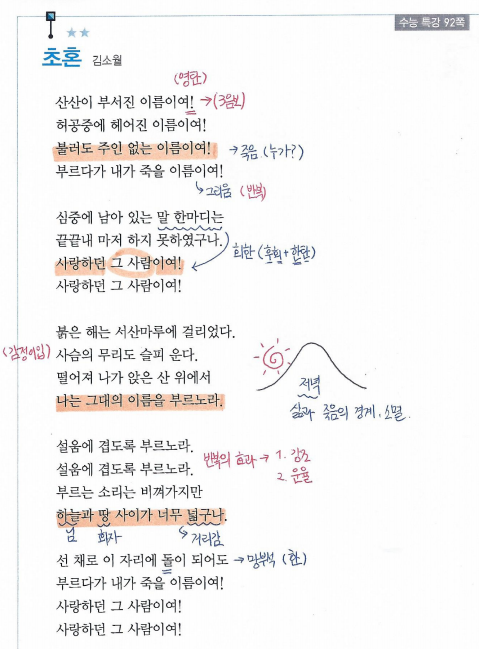 수능 특강 92쪽
★★
초혼 김소월
(영탄)
산산이 부서진 이름이여! →(3음보)
허공중에 헤어진 이름이여!
불러도 주인 없는 이름이여! →죽음 (누가?)
부르다가 내가 죽을 이름이여!
↳그리움 (반복)
심중에 남아 있는 말 한마디는
끝끝내 마저 하지 못하였구나.
회한 (후회+한탄)
사랑하던 그 사람이여!
사랑하던 그 사람이여!
붉은 해는 서산마루에 걸리었다.
(감정이입) 사슴의 무리도 슬피 운다.
떨어져 나가 앉은 산 위에서
저녁
나는 그대의 이름을 부르노라.
삶과 죽음의 경계, 소멸.
설움에 겹도록 부르노라.
반복의 효과 → 1. 강조
설움에 겹도록 부르노라.
2. 운율
부르는 소리는 비껴가지만
하늘과 땅 사이가 너무 넓구나.
님 화자 ↳거리감
선 채로 이 자리에 돌이 되어도 →망부석 (한)
부르다가 내가 죽을 이름이여!
사랑하던 그 사람이여!
사랑하던 그 사람이여!